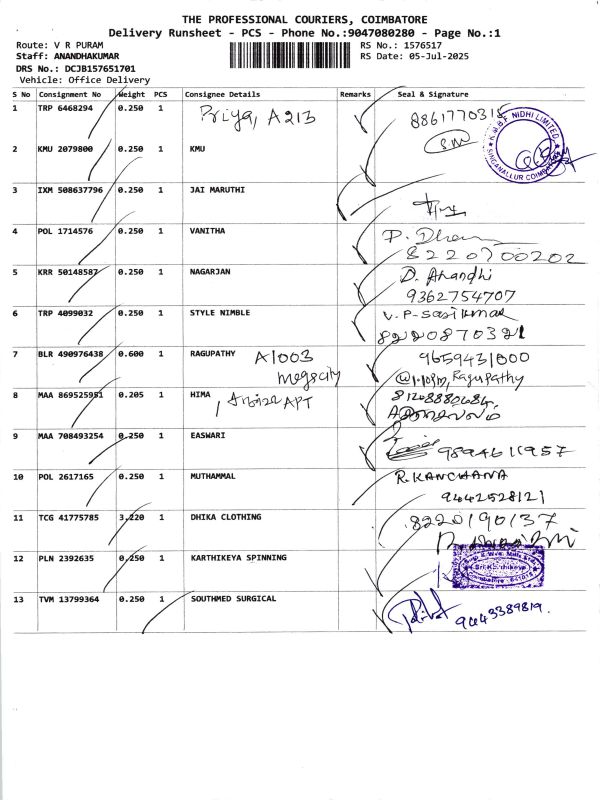 THE PROFESSIONAL COURIERS, COIMBATORE
Delivery Runsheet - PCS - Phone No.:9047080280 - Page No.:1
Route: V R PURAM RS No.: 1576517
Staff: ANANDHAKUMAR RS Date: 05-Jul-2025
DRS No.: DCJB157651701
Vehicle: Office Delivery
S No Consignment No Weight PCS Consignee Details Remarks Seal & Signature
1 TRP 6468294 0.250 1 Priya, A213 8861770315
K.M.B.F NIDHI LIMITED. SINGANALLUR COIMBATORE
2 KMU 2079800 0.250 1 KMU
3 IXM 508637796 0.250 1 JAI MARUTHI
4 POL 1714576 0.250 1 VANITHA
8220700202
5 KRR 50148587 0.250 1 NAGARJAN D. Anandhi
9362754707
6 TRP 4099032 0.250 1 STYLE NIMBLE V.P-Sasikumar
8220870321
7 BLR 490976438 0.600 1 RAGUPATHY A1003 9659431000
megacity Ragupathy
8 MAA 869525951 0.205 1 HIMA APT
9 MAA 708493254 0.250 1 EASWARI 9894611957
10 POL 2617165 0.250 1 MUTHAMMAL R.KANCHANA
9442528121
11 TCG 41775785 3.220 1 DHIKA CLOTHING 8220190137
12 PLN 2392635 0.250 1 KARTHIKEYA SPINNING
Sri Karthikeya
13 TVM 13799364 0.250 1 SOUTHMED SURGICAL 9443389819.